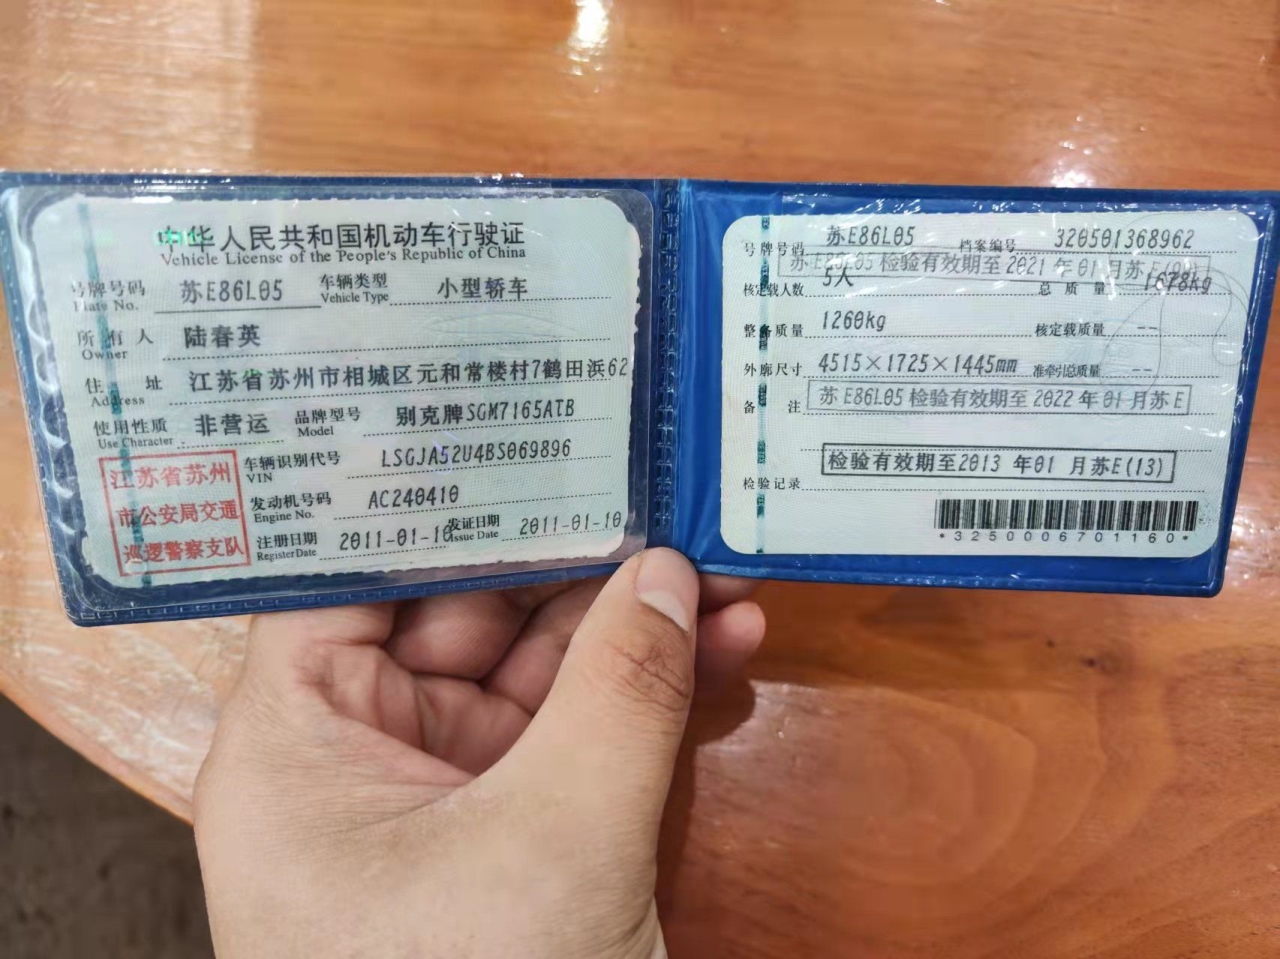 中华人民共和国机动车行驶证
Vehicle License of the People's Republic of China
号牌号码 苏E86L05 车辆类型 小型轿车
Plate No. Vehicle Type
所有人 陆春英
Owner
住址 江苏省苏州市相城区元和常楼村7鹤田浜62
Address
使用性质 非营运 品牌型号 别克牌SGM7165ATB
Use Character Model
江苏省苏州
市公安局交通
巡逻警察支队
车辆识别代号 LSGJA52U4BS069896
VIN
发动机号码 AC240410
Engine No.
注册日期 2011-01-10 发证日期 2011-01-10
Register Date Issue Date
号牌号码 苏E86L05 档案编号 320501368962
检验有效期至2021年01月苏E
核定载人数 5人 总质量 1678kg
整备质量 1260kg 核定载质量 --
外廓尺寸 4515×1725×1445mm 准牵引总质量 --
苏E86L05检验有效期至2022年01月苏E
备注
检验有效期至2013年01月苏E(13)
检验记录
*3250006701160*